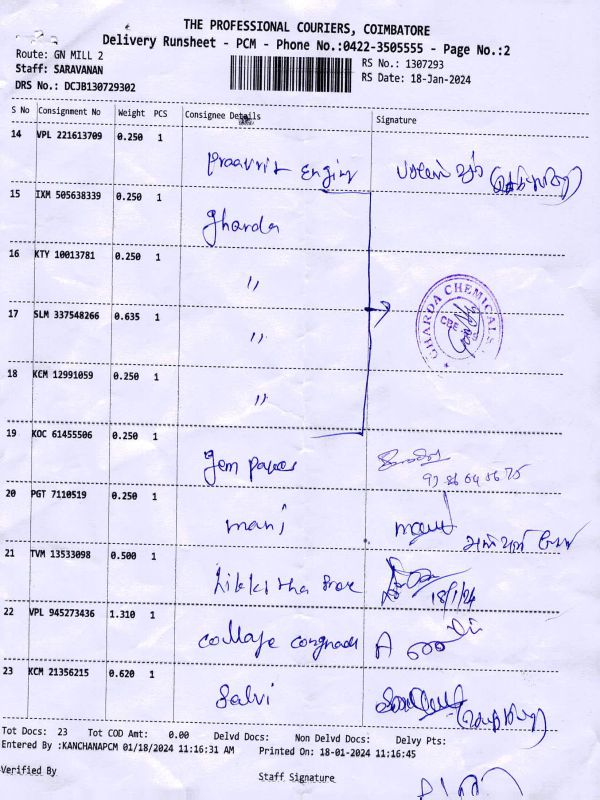 THE PROFESSIONAL COURIERS, COIMBATORE
Delivery Runsheet - PCM - Phone No.:0422-3505555 - Page No.:2
Route: GN MILL 2
RS No.: 1307293
Staff: SARAVANAN
RS Date: 18-Jan-2024
DRS No.: DCJB130729302
S No Consignment No Weight PCS Consignee Details Signature
14 VPL 221613709 0.250 1
15 IXM 505638339 0.250 1
Gharda
16 KTY 10013781 0.250 1
"
17 SLM 337548266 0.635 1
"
GHARDA CHEMICALS
CBE
18 KCM 12991059 0.250 1
"
19 KOC 61455506 0.250 1
Gem
20 PGT 7110519 0.250 1
mani
21 TVM 13533098 0.500 1
18/1/24
22 VPL 945273436 1.310 1
23 KCM 21356215 0.620 1
Salvi
Tot Docs: 23 Tot COD Amt: 0.00 Delvd Docs: Non Delvd Docs: Delvy Pts:
Entered By :KANCHANAPCM 01/18/2024 11:16:31 AM Printed On: 18-01-2024 11:16:45
Verified By
Staff Signature